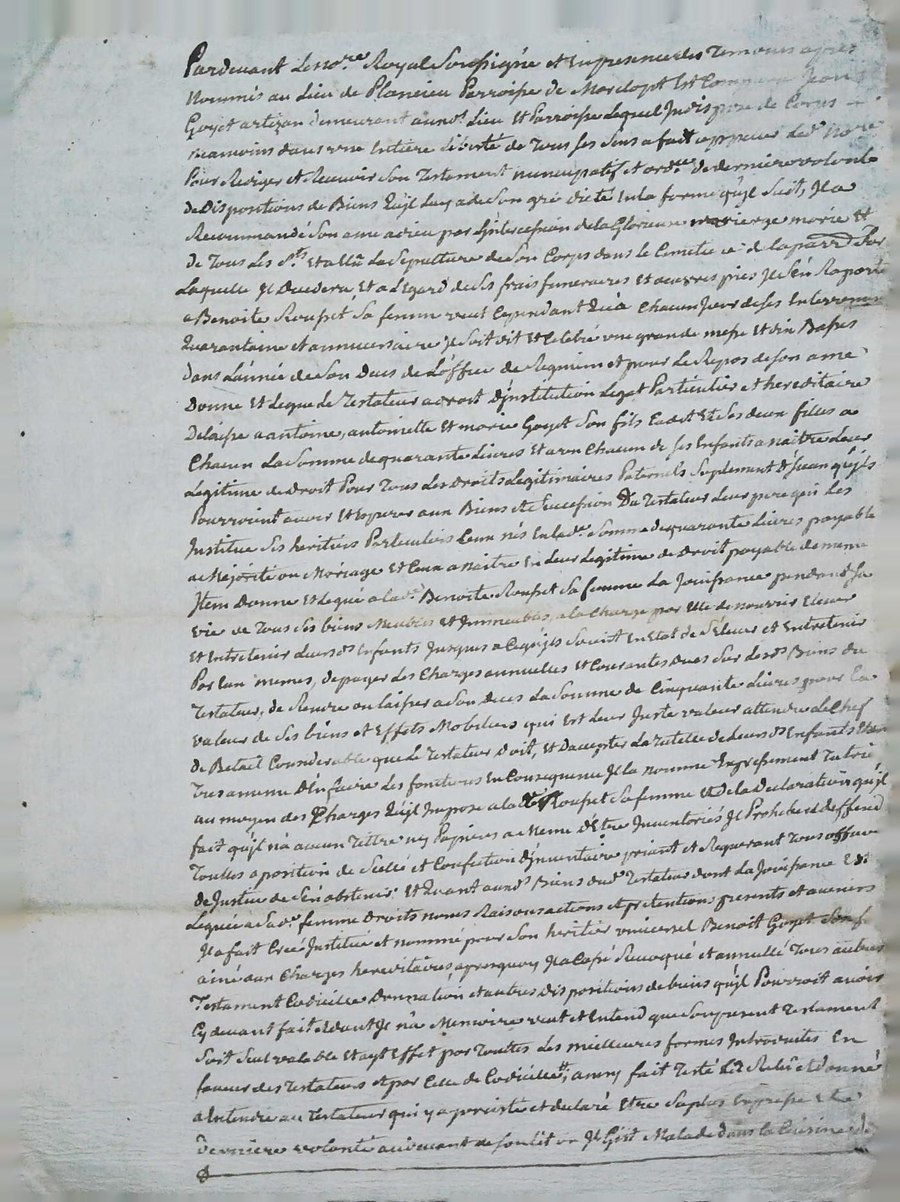 Pardevant Le no.re Royal Soussigné et En presence des Temoins apres
Nommés au Lieu de Plancieu Parroisse de Est Comparu Jean
Goyet artizan demeurant aund. Lieu Et Parroisse Lequel Indispose de Corps
neamoins dans une Entiere Liberté de Tous ses Sens a fait appeller Led. No.re
Pour Rediger et Recevoir Son Testament nuncupatif et ord.re de derniere volonté
de Dispositions de Biens Qu'il Luy a de Son gré dicté En la forme qu'il Suit, Il a
Recommandé Son ame a dieu par L'intercession de la Glorieuse vierge marie et
de Tous Les S.ts Et a Elû La Sepulture de Son Corps dans le Cimetiere de la parr. Sur
Laquelle Il Decedera, Et a L'Egard de Ses frais funeraires Et oeuvres pies Il S'En Raporte
a Benoite Roupet Sa femme veut Cependant Qu'a Chacun Jour de Ses Enterrement
Quarantaine et anniversaire Il Soit dit et Celebré une grande messe Et dix Basses
dans L'année de Son Deces de L'office de Requiem et pour Le Repos de Son ame
Donne Et Legue Le Testateur a droit D'institution Leget Particulier et hereditaire
Delaisse a antoine, antoinette Et marie Goyet Son fils Cadet Et Ses deux filles a
Chacun La Somme de quarante Livres Et a un Chacun de Ses Enfants a naitre Leur
Legitime de Droit Pour Tous Les Droits Legitimaires Paternels Suplement D'Iceux qu'ils
Pourroient avoir Et Esperer aux Biens Et Succession Du Testateur Leur pere qui Les
Institue Ses heritiers Particuliers Ceux nés En lad.e Somme de quarante Livres payable
a Majorité ou Mariage Et Ceux a naitre En Leur Legitime de Droit payable de meme
Item Donne Et Legue a lad.e Benoite Roupet Sa femme La Jouissance pendand Sa
vie de Tous Ses biens Meubles Et Immeubles, a la Charge par Elle de nourrir Elever
Et Entretenir Leurs d. Enfants Jusques a Ce qu'ils Soient En Etat de S'Elever et Entretenir
Par Eux memes, de payer Les Charges annuelles Et Courantes dues Sur Lesd. Biens du
Testateur, de Rendre ou laisser a Son Deces La Somme de Cinquante Livres pour La
valeur de Ses biens et Effets Mobiliers qui Est Leur Juste valeur attendu le Chef
de Betail Considerable que Le Testateur Doit, Et D'accepter La Tutelle de Leurs d. Enfants
D'En faire Les fonctions En Consequence Il La nomme Tutrice
au moyen des Charges Qu'il Impose a lad. Roupet Sa femme Et de la Declaration qu'il
fait qu'il n'a aucun Tittre ny Papiers a Meme D'Etre Inventoriés Il Prohibe et deffend
Touttes aposition de Scellé et Confection D'Inventaire priant et Requerant Tous officiers
de Justice de S'En abstenir. Et Quant aux d. Biens dud. Testateur dont La Jouissance Est
Leguée a Sad.e femme Droits noms Raisons actions et pretentions presents et avenirs
Il a fait Creé Institué et nommé pour Son heritier universel Benoit Goyet Son f
ainé aux Charges hereditaires apresquoy Il a Cassé Revoqué et annullé Tous autres
Testament Codicille Donnation et autres dispositions de biens qu'il Pourroit avoir
Cy devant fait Et dont Il n'a Memoire veut et Entend que Son present Testament
Soit Seul valable Et ayt Effet par Touttes Les meilleures formes Introduites En
faveur des Testateurs et par Celle de Codicille, ainsy fait Testé Lû Relû et donné
a Entendre au Testateur qui y a persisté et declaré Etre Sa plus Expresse et
derniere volonté au devant de Son lit ou Il Gist Malade dans la Cuisine de